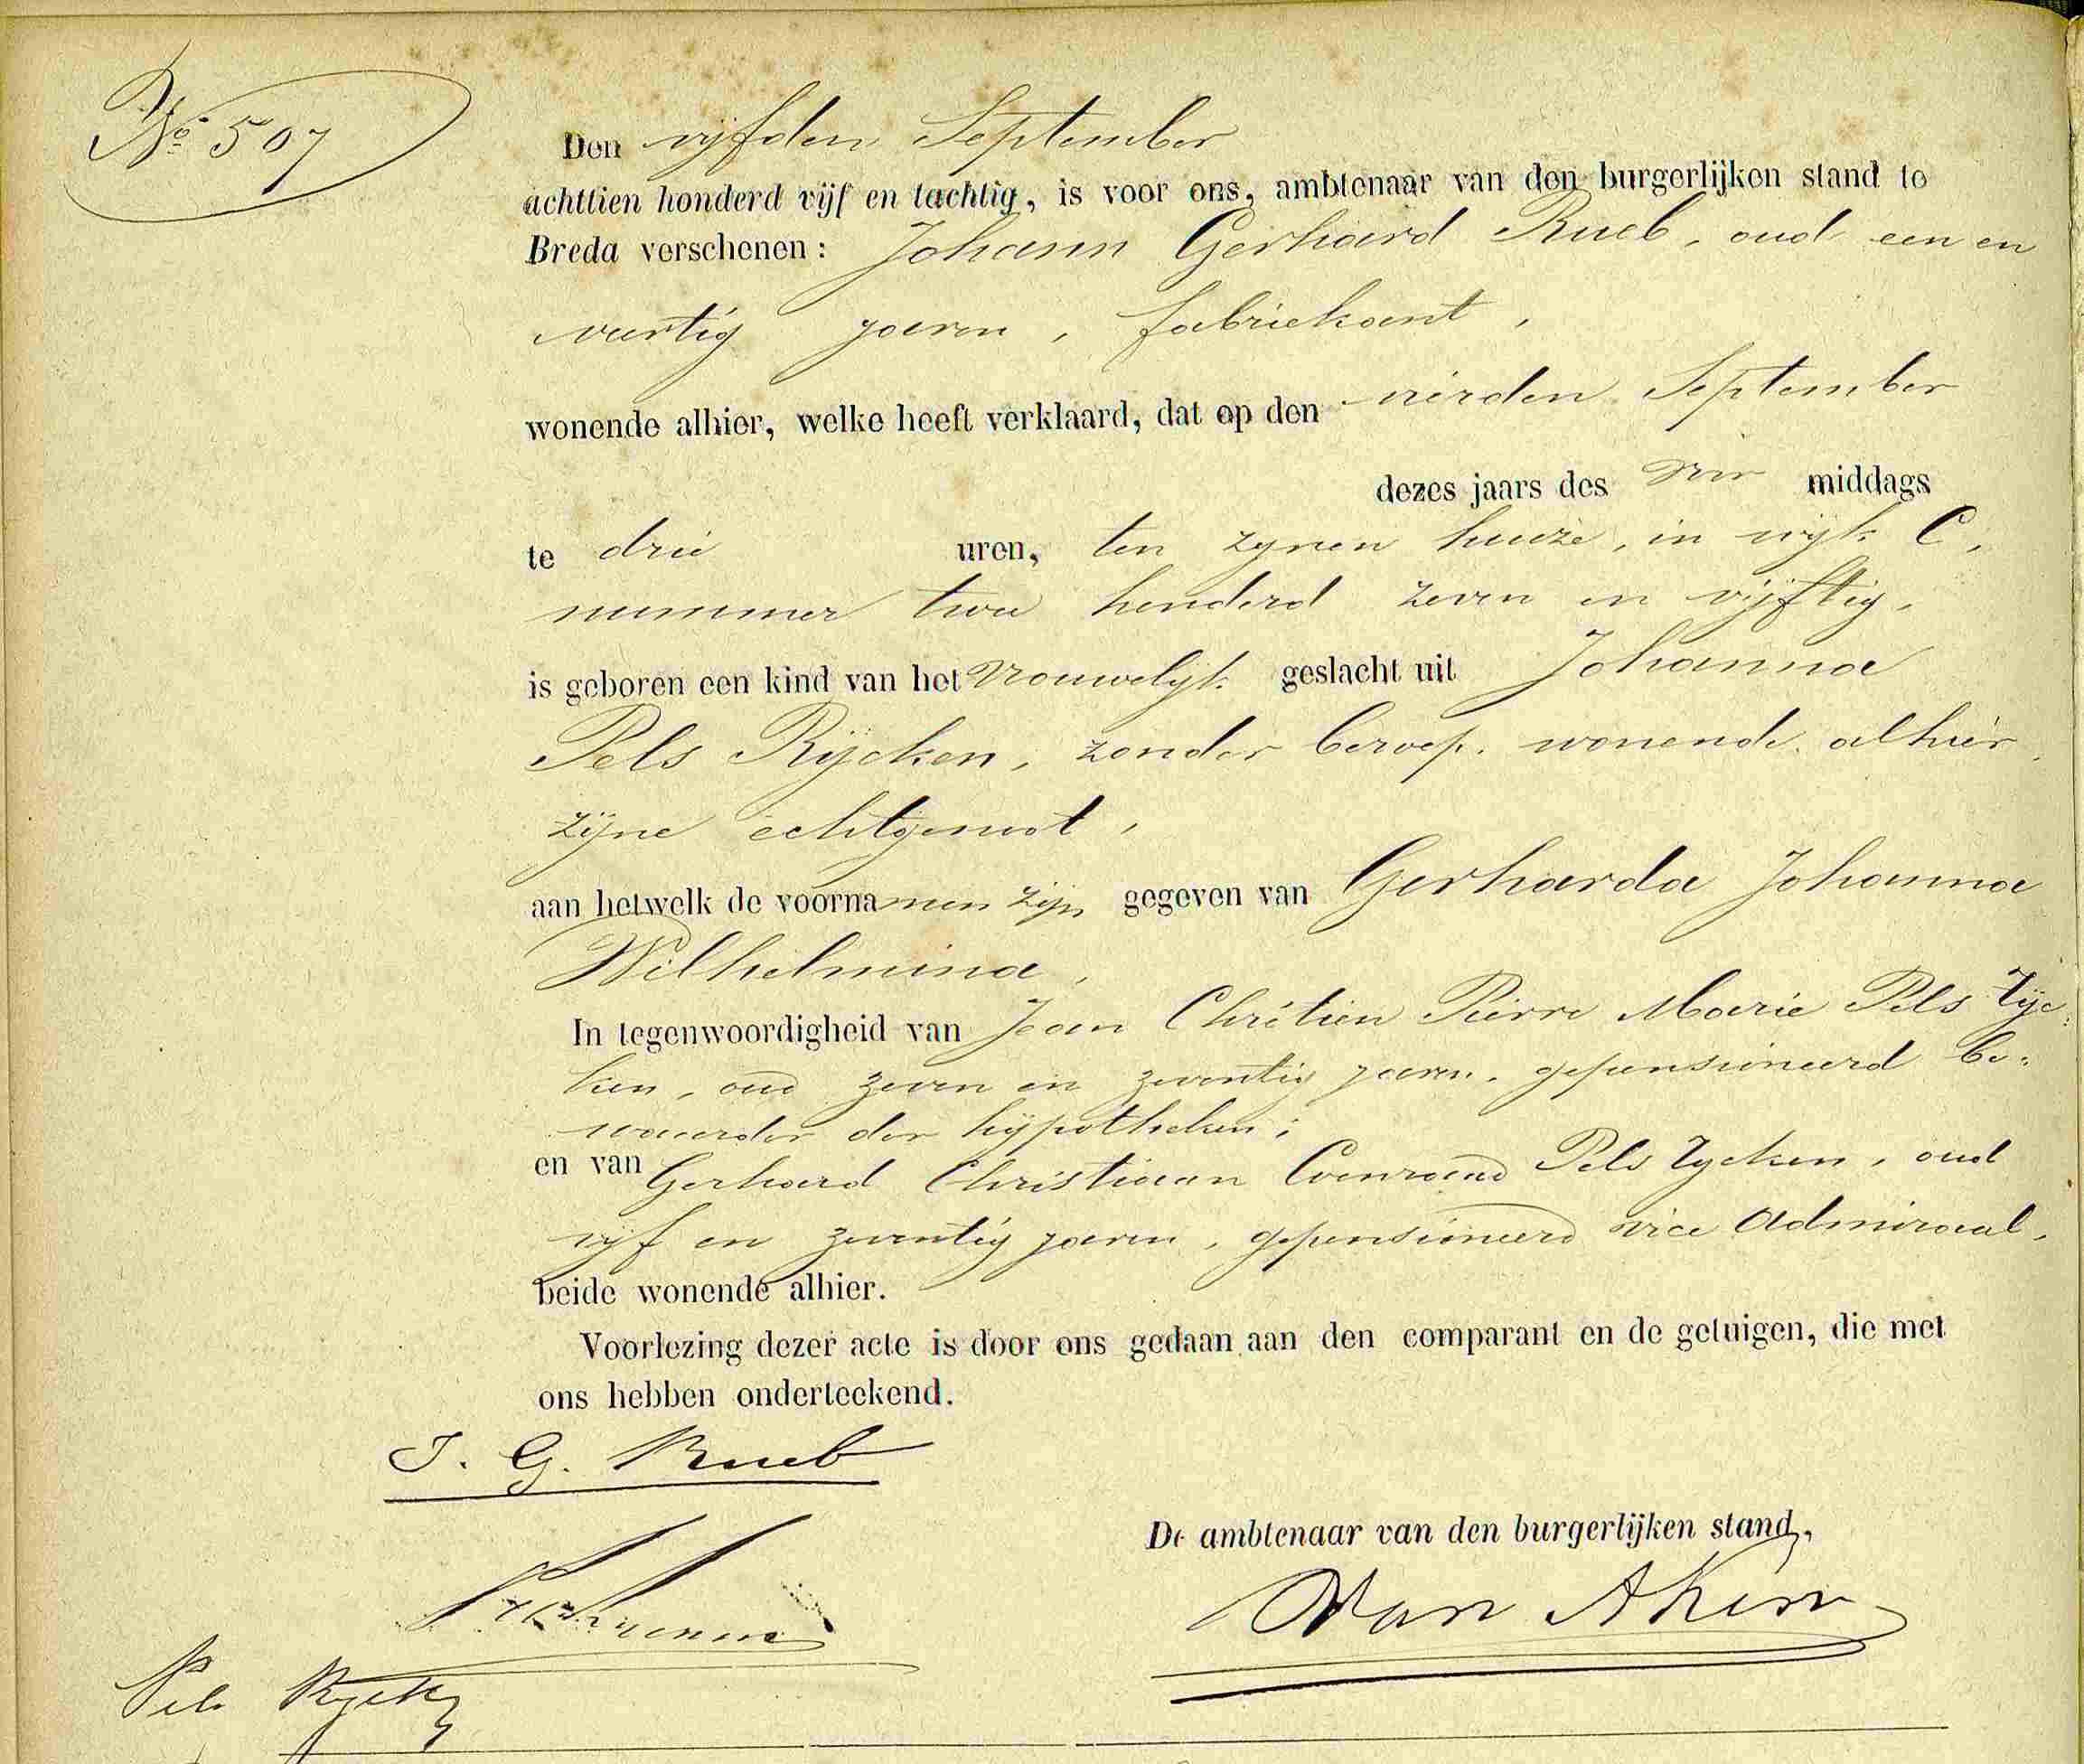 No 507
Den vijfden September
achttien honderd vijf en tachtig, is voor ons, ambtenaar van den burgerlijken stand te
Breda verschenen: Johann Gerhard Rueb, oud een en
veertig jaren, fabriekant,
wonende alhier, welke heeft verklaard, dat op den vierden September
dezes jaars des voor middags
te drie uren, ten zynen huize, in wijk C,
nummer twee honderd zeven en vijftig,
is geboren een kind van het vrouwelijk geslacht uit Johanna
Pels Rijcken, zonder beroep, wonende alhier,
zijne echtgenoot,
aan hetwelk de voornamen zijn gegeven van Gerharda Johanna
Wilhelmina,
In tegenwoordigheid van Jean Chrétien Pierre Marie Pels Ryc:
ken, oud zeven en zeventig jaren, gepensioneerd be:
waarder der hypotheken;
en van Gerhard Christiaan Coenraad Pels Rycken, oud
vijf en zeventig jaren, gepensioneerd vice Admiraal,
beide wonende alhier.
Voorlezing dezer acte is door ons gedaan aan den comparant en de getuigen, die met
ons hebben onderteekend.
J. G. Rueb
De ambtenaar van den burgerlijken stand,
Pels Rycken